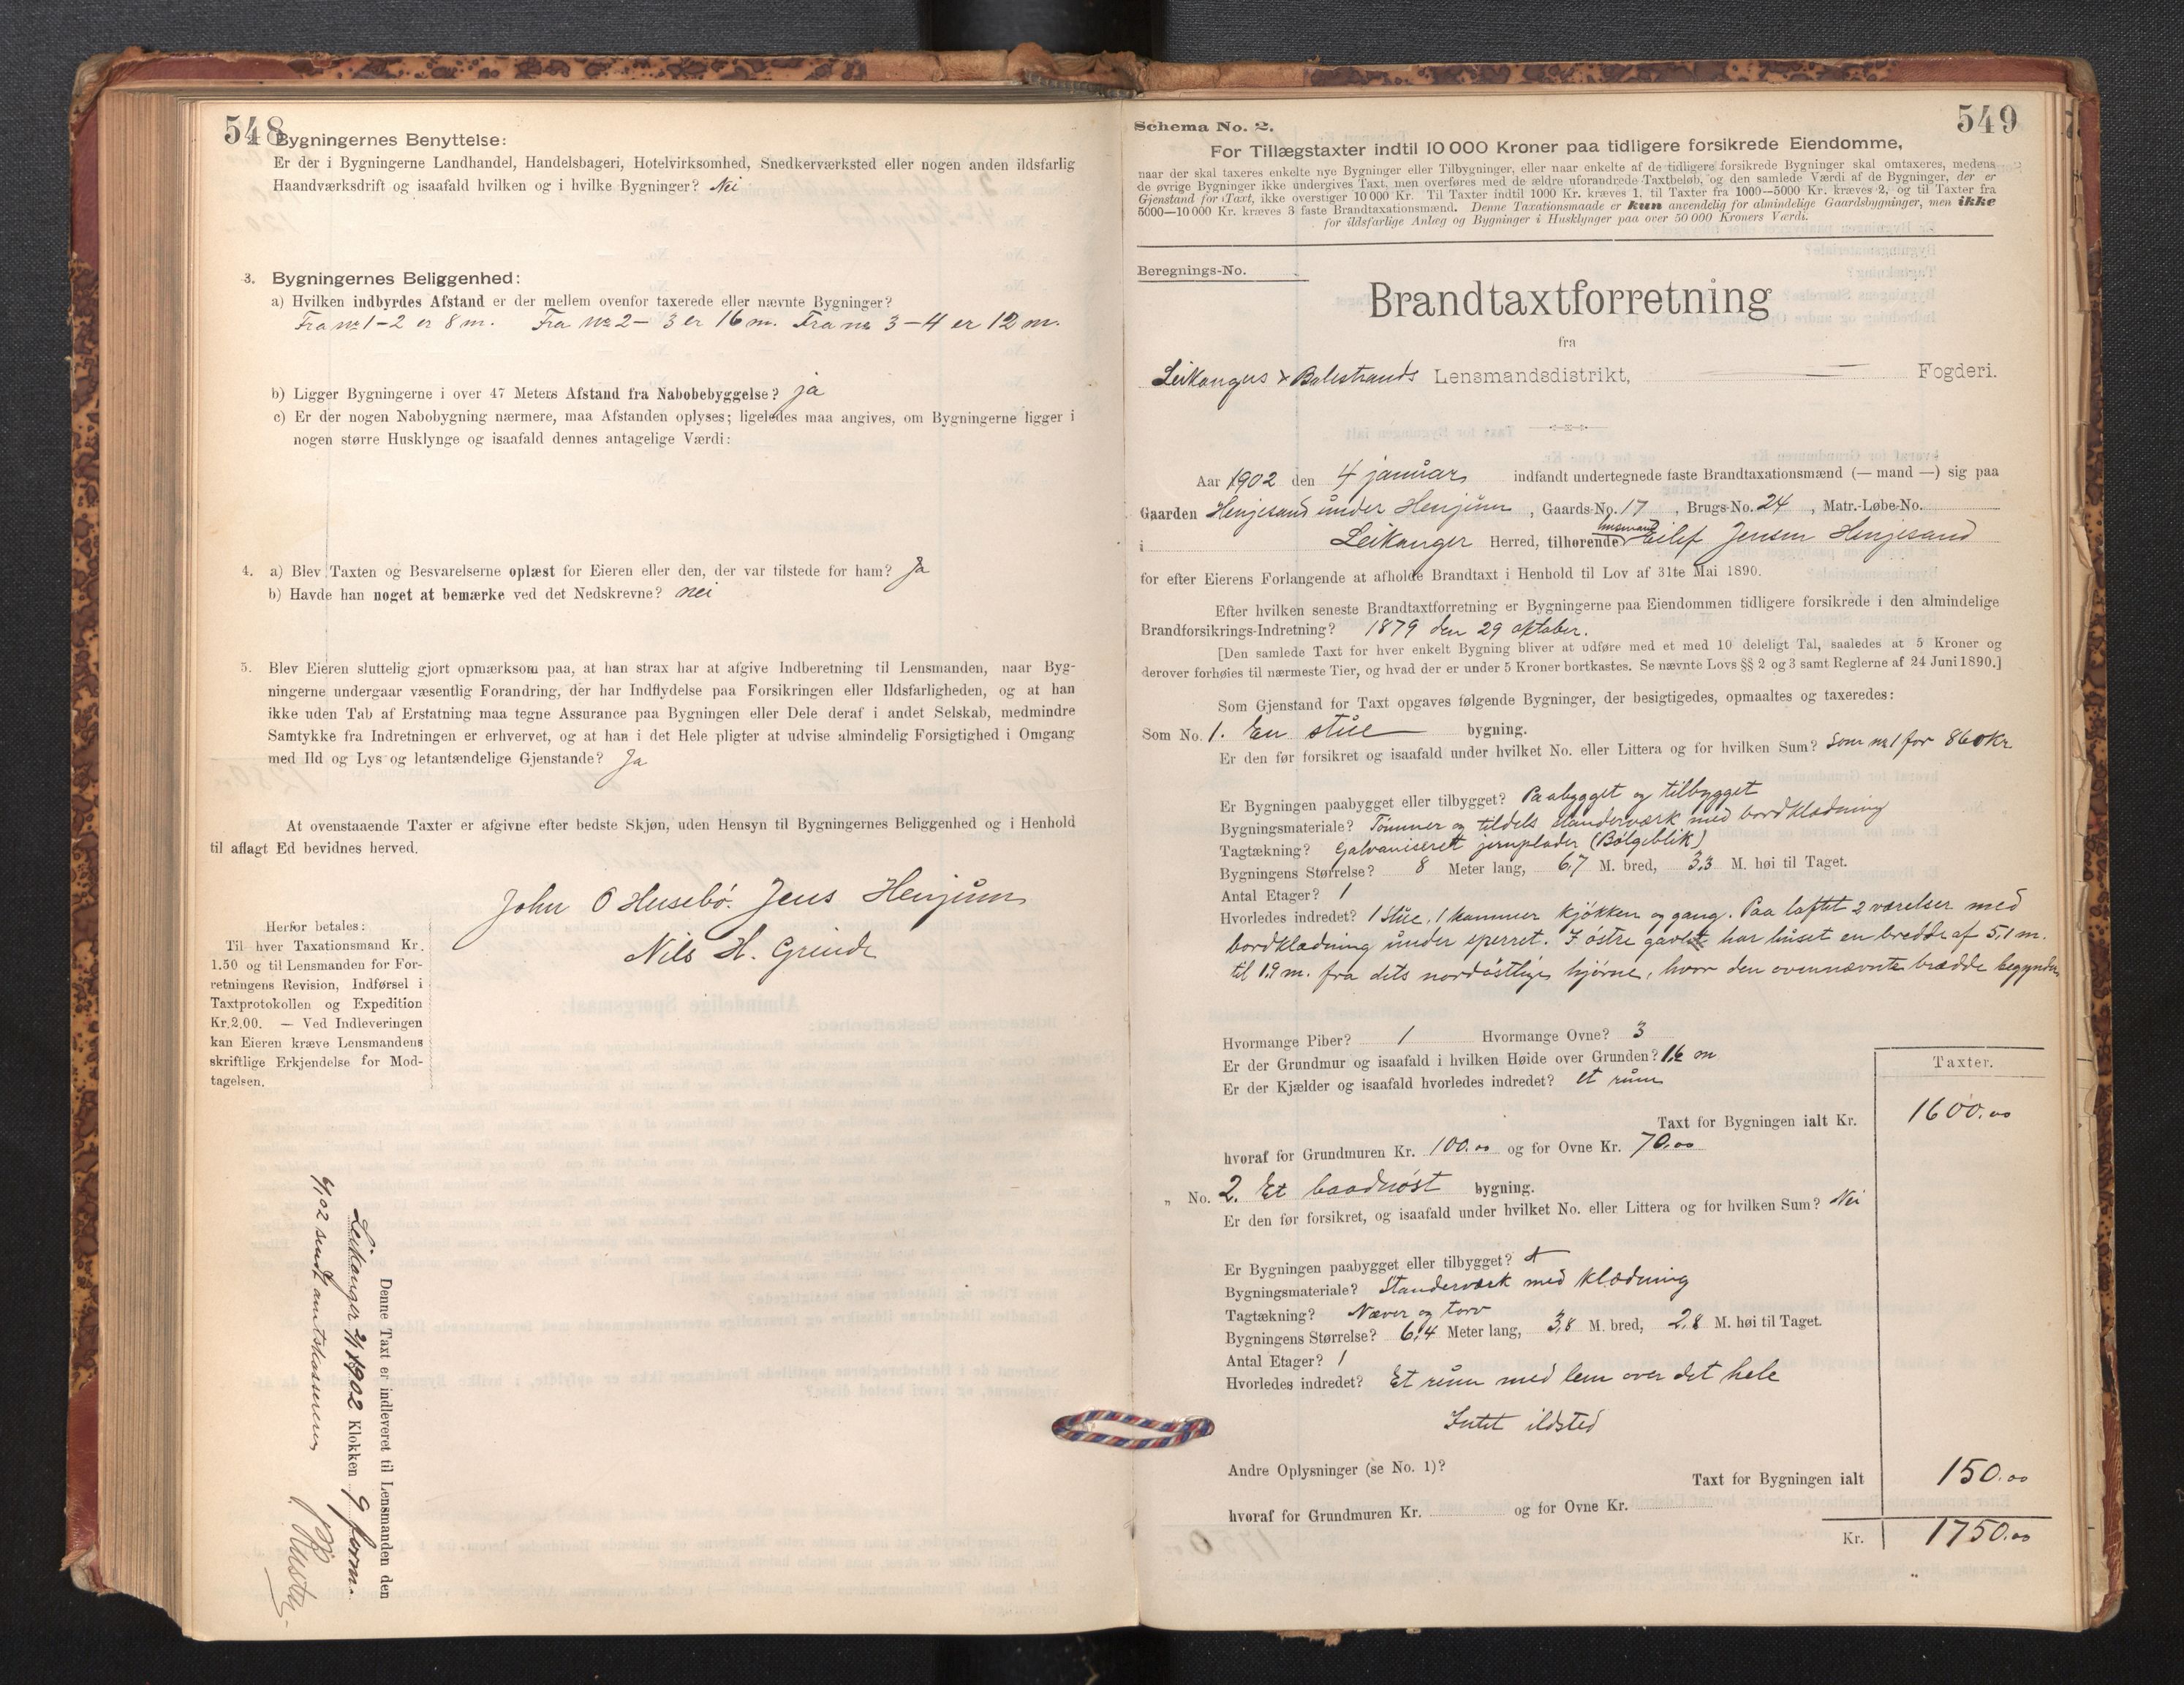 548
Bygningernes Benyttelse:
Er der i Bygningerne Landhandel, Handelsbageri, Hotelvirksomhed, Snedkerværksted eller nogen anden ildsfarlig
Haandværksdrift og isaafald hvilken og i hvilke Bygninger? Nei
3. Bygningernes Beliggenhed:
a) Hvilken indbyrdes Afstand er der mellem ovenfor taxerede eller nævnte Bygninger?
Fra no 1-2 er 8 m. Fra No 2-3 er 16 m. Fra no 3-4 er 12 m.
b) Ligger Bygningerne i over 47 Meters Afstand fra Nabobebyggelse? ja
c) Er der nogen Nabobygning nærmere, maa Afstanden oplyses; ligeledes maa angives, om Bygningerne ligger i
nogen større Husklynge og isaafald dennes antagelige Værdi:
4. a) Blev Taxten og Besvarelserne oplæst for Eieren eller den, der var tilstede for ham? Ja
b) Havde han noget at bemærke ved det Nedskrevne? nei
5. Blev Eieren sluttelig gjort opmærksom paa, at han strax har at afgive Indberetning til Lensmanden, naar Byg-
ningerne undergaar væsentlig Forandring, der har Indflydelse paa Forsikringen eller Ildsfarligheden, og at han
ikke uden Tab af Erstatning maa tegne Assurance paa Bygningen eller Dele deraf i andet Selskab, medmindre
Samtykke fra Indretningen er erhvervet, og at han i det Hele pligter at udvise almindelig Forsigtighed i Omgang
med Ild og Lys og letantændelige Gjenstande? Ja
At ovenstaaende Taxter er afgivne efter bedste Skjøn, uden Hensyn til Bygningernes Beliggenhed og i Henhold
til aflagt Ed bevidnes herved.
John O Husebö. Jens Henjum
Nils H. Grinde
Herfor betales:
Til hver Taxationsmand Kr.
1.50 og til Lensmanden for For-
retningens Revision, Indførsel i
Taxtprotokollen og Expedition
Kr. 2.00. — Ved Indleveringen
kan Eieren kræve Lensmandens
skriftlige Erkjendelse for Mod-
tagelsen.
Denne Taxt er indleveret til Lensmanden den
Leikanger 1902 Klokken 9 form.
02 sendt amtskasseren
549
Schema No. 2.
For Tillægstaxter indtil 10 000 Kroner paa tidligere forsikrede Eiendomme,
naar der skal taxeres enkelte nye Bygninger eller Tilbygninger, eller naar enkelte af de tidligere forsikrede Bygninger skal omtaxeres, medens
de øvrige Bygninger ikke undergives Taxt, men overføres med de ældre uforandrede Taxtbeløb, og den samlede Værdi af de Bygninger, der er
Gjenstand for Taxt, ikke overstiger 10 000 Kr. Til Taxter indtil 1000 Kr. kræves 1, til Taxter fra 1000—5000 Kr. kræves 2, og til Taxter fra
5000—10 000 Kr. kræves 3 faste Brandtaxationsmænd. Denne Taxationsmaade er kun anvendelig for almindelige Gaardsbygninger, men ikke
for ildsfarlige Anlæg og Bygninger i Husklynger paa over 50 000 Kroners Værdi.
Beregnings-No.
Brandtaxtforretning
fra
Leikanger & Balestrands Lensmandsdistrikt, Fogderi.
Aar 1902 den 4 januar indfandt undertegnede faste Brandtaxationsmænd (— mand —) sig paa
Gaarden Henjesand under Henjum, Gaards-No. 17, Brugs-No. 24, Matr.-Løbe-No.
husmand
i Leikanger Herred, tilhørende Eilef Jensen Henjesand
for efter Eierens Forlangende at afholde Brandtaxt i Henhold til Lov af 31te Mai 1890.
Efter hvilken seneste Brandtaxtforretning er Bygningerne paa Eiendommen tidligere forsikrede i den almindelige
Brandforsikrings-Indretning? 1879 den 29 oktober.
[Den samlede Taxt for hver enkelt Bygning bliver at udføre med et med 10 deleligt Tal, saaledes at 5 Kroner og
derover forhøies til nærmeste Tier, og hvad der er under 5 Kroner bortkastes. Se nævnte Lovs §§ 2 og 3 samt Reglerne af 24 Juni 1890.]
Som Gjenstand for Taxt opgaves følgende Bygninger, der besigtigedes, opmaaltes og taxeredes:
Som No. 1. En stue bygning.
Er den før forsikret og isaafald under hvilket No. eller Littera og for hvilken Sum? Som no 1 for 860 Kr.
Er Bygningen paabygget eller tilbygget? Paabygget og tilbygget
Bygningsmateriale? Tømmer og tildels standerværk med bordklædning
Tagtækning? Galvaniseret jernplader (Bölgeblik)
Bygningens Størrelse? 8 Meter lang, 6,7 M. bred, 3,3 M. høi til Taget.
Antal Etager? 1
Hvorledes indredet? 1 Stue, 1 kammer Kjökken og gang. Paa loftet 2 værelser med
bordklædning under sperret. I östre gavlet har huset en bredde af 5,1 m.
til 1,9 m. fra dets nordöstlige hjörne, hvor den ovennævnte brædde begynder
Hvormange Piber? 1 Hvormange Ovne? 3
Er der Grundmur og isaafald i hvilken Høide over Grunden? 1,6 m
Er der Kjælder og isaafald hvorledes indredet? et rum
Taxter.
Taxt for Bygningen ialt Kr. 1600.00
hvoraf for Grundmuren Kr. 100.00 og for Ovne Kr. 70.00
„ No. 2. Et baadnöst bygning.
Er den før forsikret, og isaafald under hvilket No. eller Littera og for hvilken Sum? Nei
Er Bygningen paabygget eller tilbygget?
Bygningsmateriale? Standerværk med klædning
Tagtækning? Næver og torv
Bygningens Størrelse? 6,4 Meter lang, 3,8 M. bred, 2,8 M. høi til Taget.
Antal Etager? 1
Hvorledes indredet? Et rum med lem over det hele
Intet ildsted
Andre Oplysninger (se No. 1)?
Taxt for Bygningen ialt 150.00
hvoraf for Grundmuren Kr. og for Ovne Kr.
Kr. 1750.00